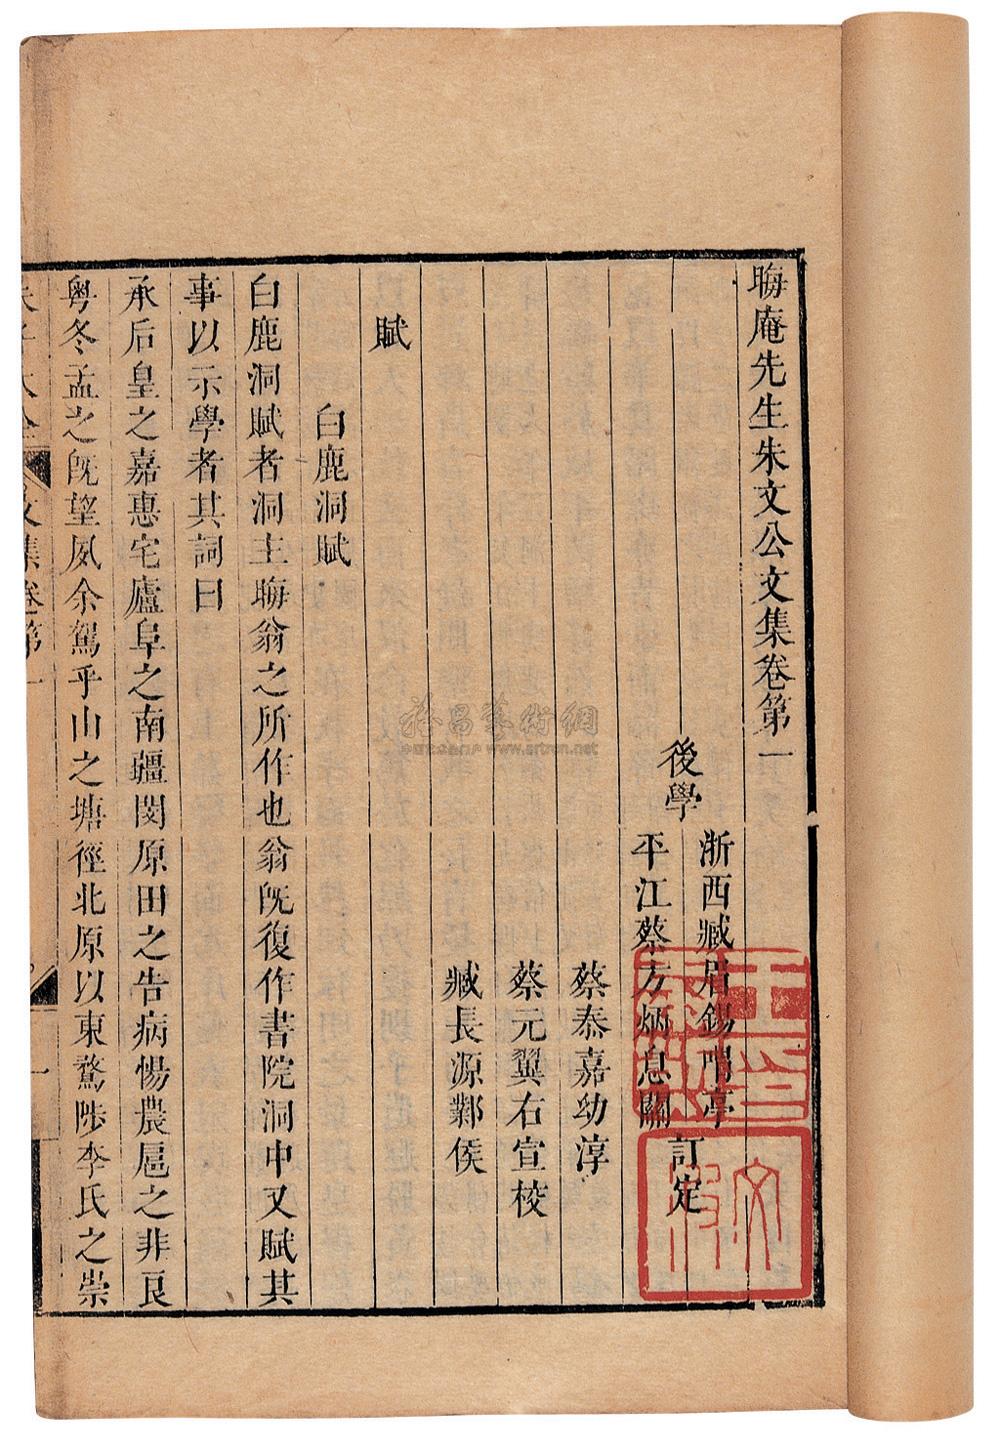 晦庵先生朱文公文集卷第一
後學
浙西臧眉錫喟亭
平江蔡方炳息關
訂定
蔡泰嘉幼淳
蔡元翼右宣校
臧長源酇侯
賦
白鹿洞賦
白鹿洞賦者洞主晦翁之所作也翁旣復作書院洞中又賦其
事以示學者其詞曰
承后皇之嘉惠宅廬阜之南疆閔原田之告病惕農扈之非良
粤冬孟之旣望夙余駕乎山之塘徑北原以東騖陟李氏之崇
朱子大全
文集卷第一
一
www.artron.net